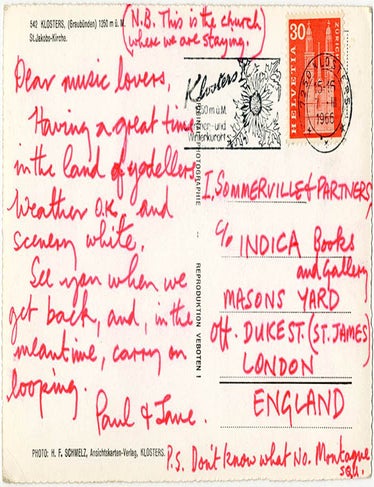 542 KLOSTERS, (Graubünden) 1250 m ü. M.
St.Jakobs-Kirche.
(N.B. This is the church)
(where we are staying.
Dear music lovers,
Having a great time
in the land of yodellers,
Weather O.K. and
scenery white.
See you when we
get back, and, in the
meantime, carry on
looping.
Paul & Jane.
PHOTO: H. F. SCHMELZ, Ansichtskarten-Verlag, KLOSTERS.
PHOTOGRAPHIE - REPRODUKTION VERBOTEN !
Klosters
m ü.M.
und
Winterkurort
HELVETIA
30
ZÜRICH
7250 KLOSTERS
15-16
1966
I, SOMMERVILLE & PARTNERS
c/o INDICA Books
and Gallery
MASONS YARD
off. DUKE ST. (ST. JAMES)
LONDON
ENGLAND
P.S. Don't know what No. Montague
squ.